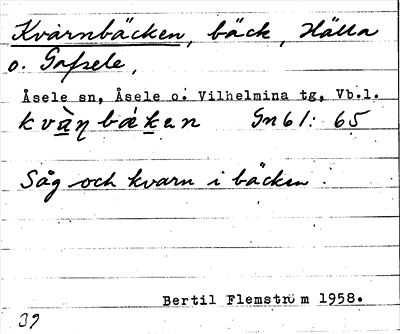 Kvarnbäcken, bäck, Hälla
o. Gafsele,
Åsele sn, Åsele o. Vilhelmina tg, Vb.l.
Gn 61: 65
Såg och kvarn i bäcken.
Bertil Flemström 1958.
39